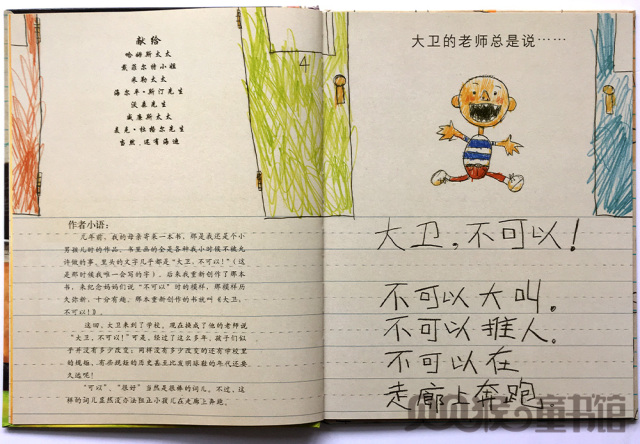 献给
哈姆斯太太
戴菲尔特小姐
米勒太太
海尔平·斯汀先生
沃泰先生
威廉斯太太
麦克·拉格尔先生
当然,还有海迪
4
作者小语:
几年前,我的母亲寄来一本书,那是我还是个小
男孩儿时的作品。书里画的全是各种我小时候不被允
许做的事,里头的文字几乎都是“大卫,不可以!”(这
是那时候我唯一会写的字)。后来我重新创作了那本
书,来纪念妈妈们说“不可以”时的模样,那模样历
久弥新、十分有趣。那本重新创作的书就叫《大卫,
不可以!》。
这回,大卫来到了学校,现在换成了他的老师说
“大卫,不可以!”可是,经过了这么多年,孩子们似
乎并没有多少改变;同样没有多少改变的还有学校里
的规矩,有些规矩的历史甚至比发明球鞋的年代还要
久远呢!
“可以”、“很好”当然是很棒的词儿。不过,这
样的词儿显然没办法阻止小孩儿在走廊上奔跑。
大卫的老师总是说……
大卫,不可以!
不可以大叫。
不可以推人。
不可以在
走廊上奔跑。
童书馆